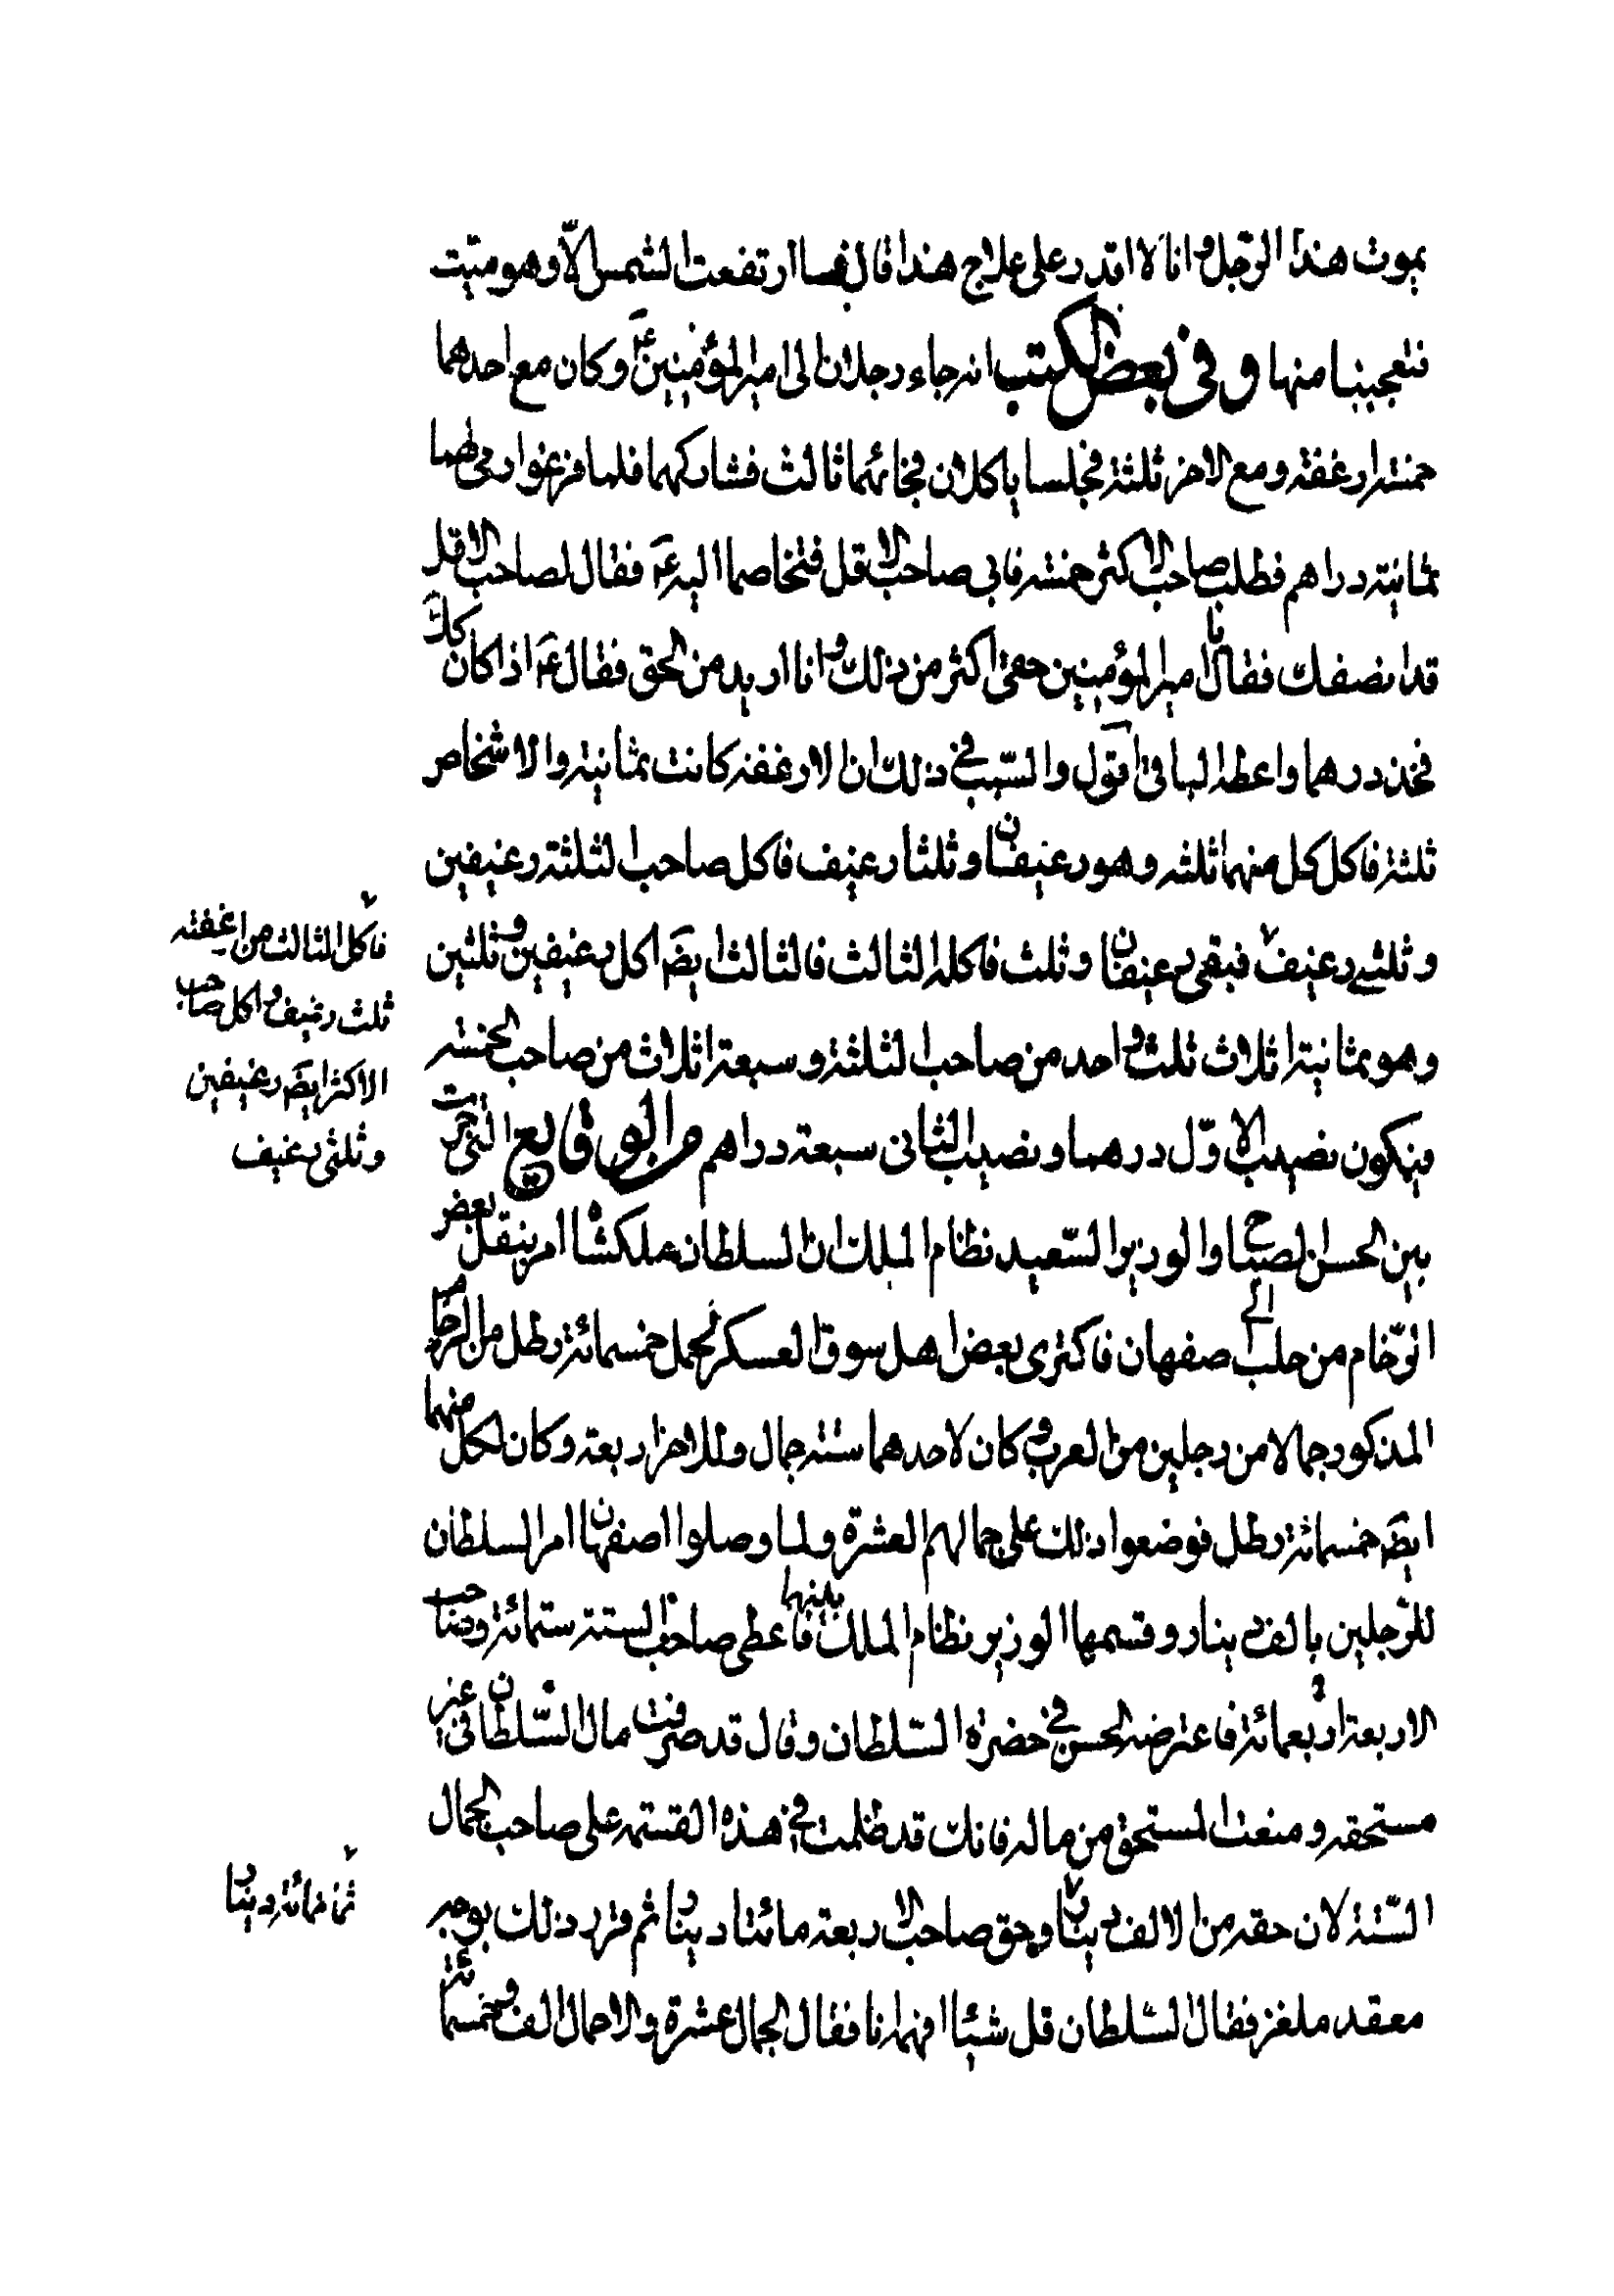 يموت هذا الرّجل وانا لا اقدر على علاج هذا قال فما ارتفعت الشمس الّا وهو ميّت
فتعجبنا منها وفي بعض الكتب انه جاء رجلان الى امير المؤمنين عؔ وكان مع احدهما
خمسة ارغفة ومع الاخر ثلثة فجلسا ياكلان فجائهما ثالث فشاركهما فلما فرغوا رمى لهما
ثمانية دراهم فطلب صاحب الاكثر خمسة فابى صاحب الاقل فتخاصما اليه عؔ فقال لصاحب الاقل
قد انصفك فقال يا امير المؤمنين حقى اكثر من ذلك وانا اريد من الحق فقال عؔ اذا كان كك
فخذ درهما واعطه الباقى اقول والسّبب في ذلك ان الارغفة كانت ثمانية والاشخاص
ثلثة فاكل كل منهما ثلثه وهو رغيفان وثلثا رغيف فاكل صاحب الثلثة رغيفين
وثلثى رغيف فبقى رغيفان وثلث فاكله الثالث فالثالث ايضؔ اكل رغيفين وثلثين
وهو ثمانية اثلاث ثلث واحد من صاحب الثلثة وسبعة اثلاث من صاحب الخمسة
فيكون نصيب الاوّل درهما ونصيب الثانى سبعة دراهم من الوقايع التى جرت
بين الحسن الصباح والوزير السّعيد نظام الملك ان السلطان ملكشاه امر بنقل بعض
الرّخام من حلب الى صفهان فاكترى بعض اهل سوق العسكر لحمل خمسمائة رطل من الرخام
المذكور جمالا من رجلين من العرب وكان لاحدهما ستة جمال وللاخر اربعة وكان لكل منهما
ايضؔ خمسمائة رطل فوضعوا ذلك على جمالهم العشرة ولما وصلوا اصفهان امر السلطان
للرّجلين بالف دينار وقسمها الوزير نظام الملك بينهما فاعطى صاحب الستة ستمائة وصاحب
الاربعة اربعمائة فاعترضه الحسن في حضرة السّلطان وقال قد صرفت مال السّلطان في غير
مستحقه ومنعت المستحق من ماله فانك قد ظلمت في هذه القسمة على صاحب الجمال
الستّة لان حقه من الالف دينار وحق صاحب الاربعة مائتا دينار ثم قرر ذلك بوجه
معقد ملغز فقال السّلطان قل شيئا افهم انا فقال الجمال عشرة والاحمال الف وخمسمائة
فاكل الثالث من ارغفته
ثلث رغيف واكل صاحب
الاكثر ايضؔ رغيفين
وثلثى رغيف
ثمانمائة دينار